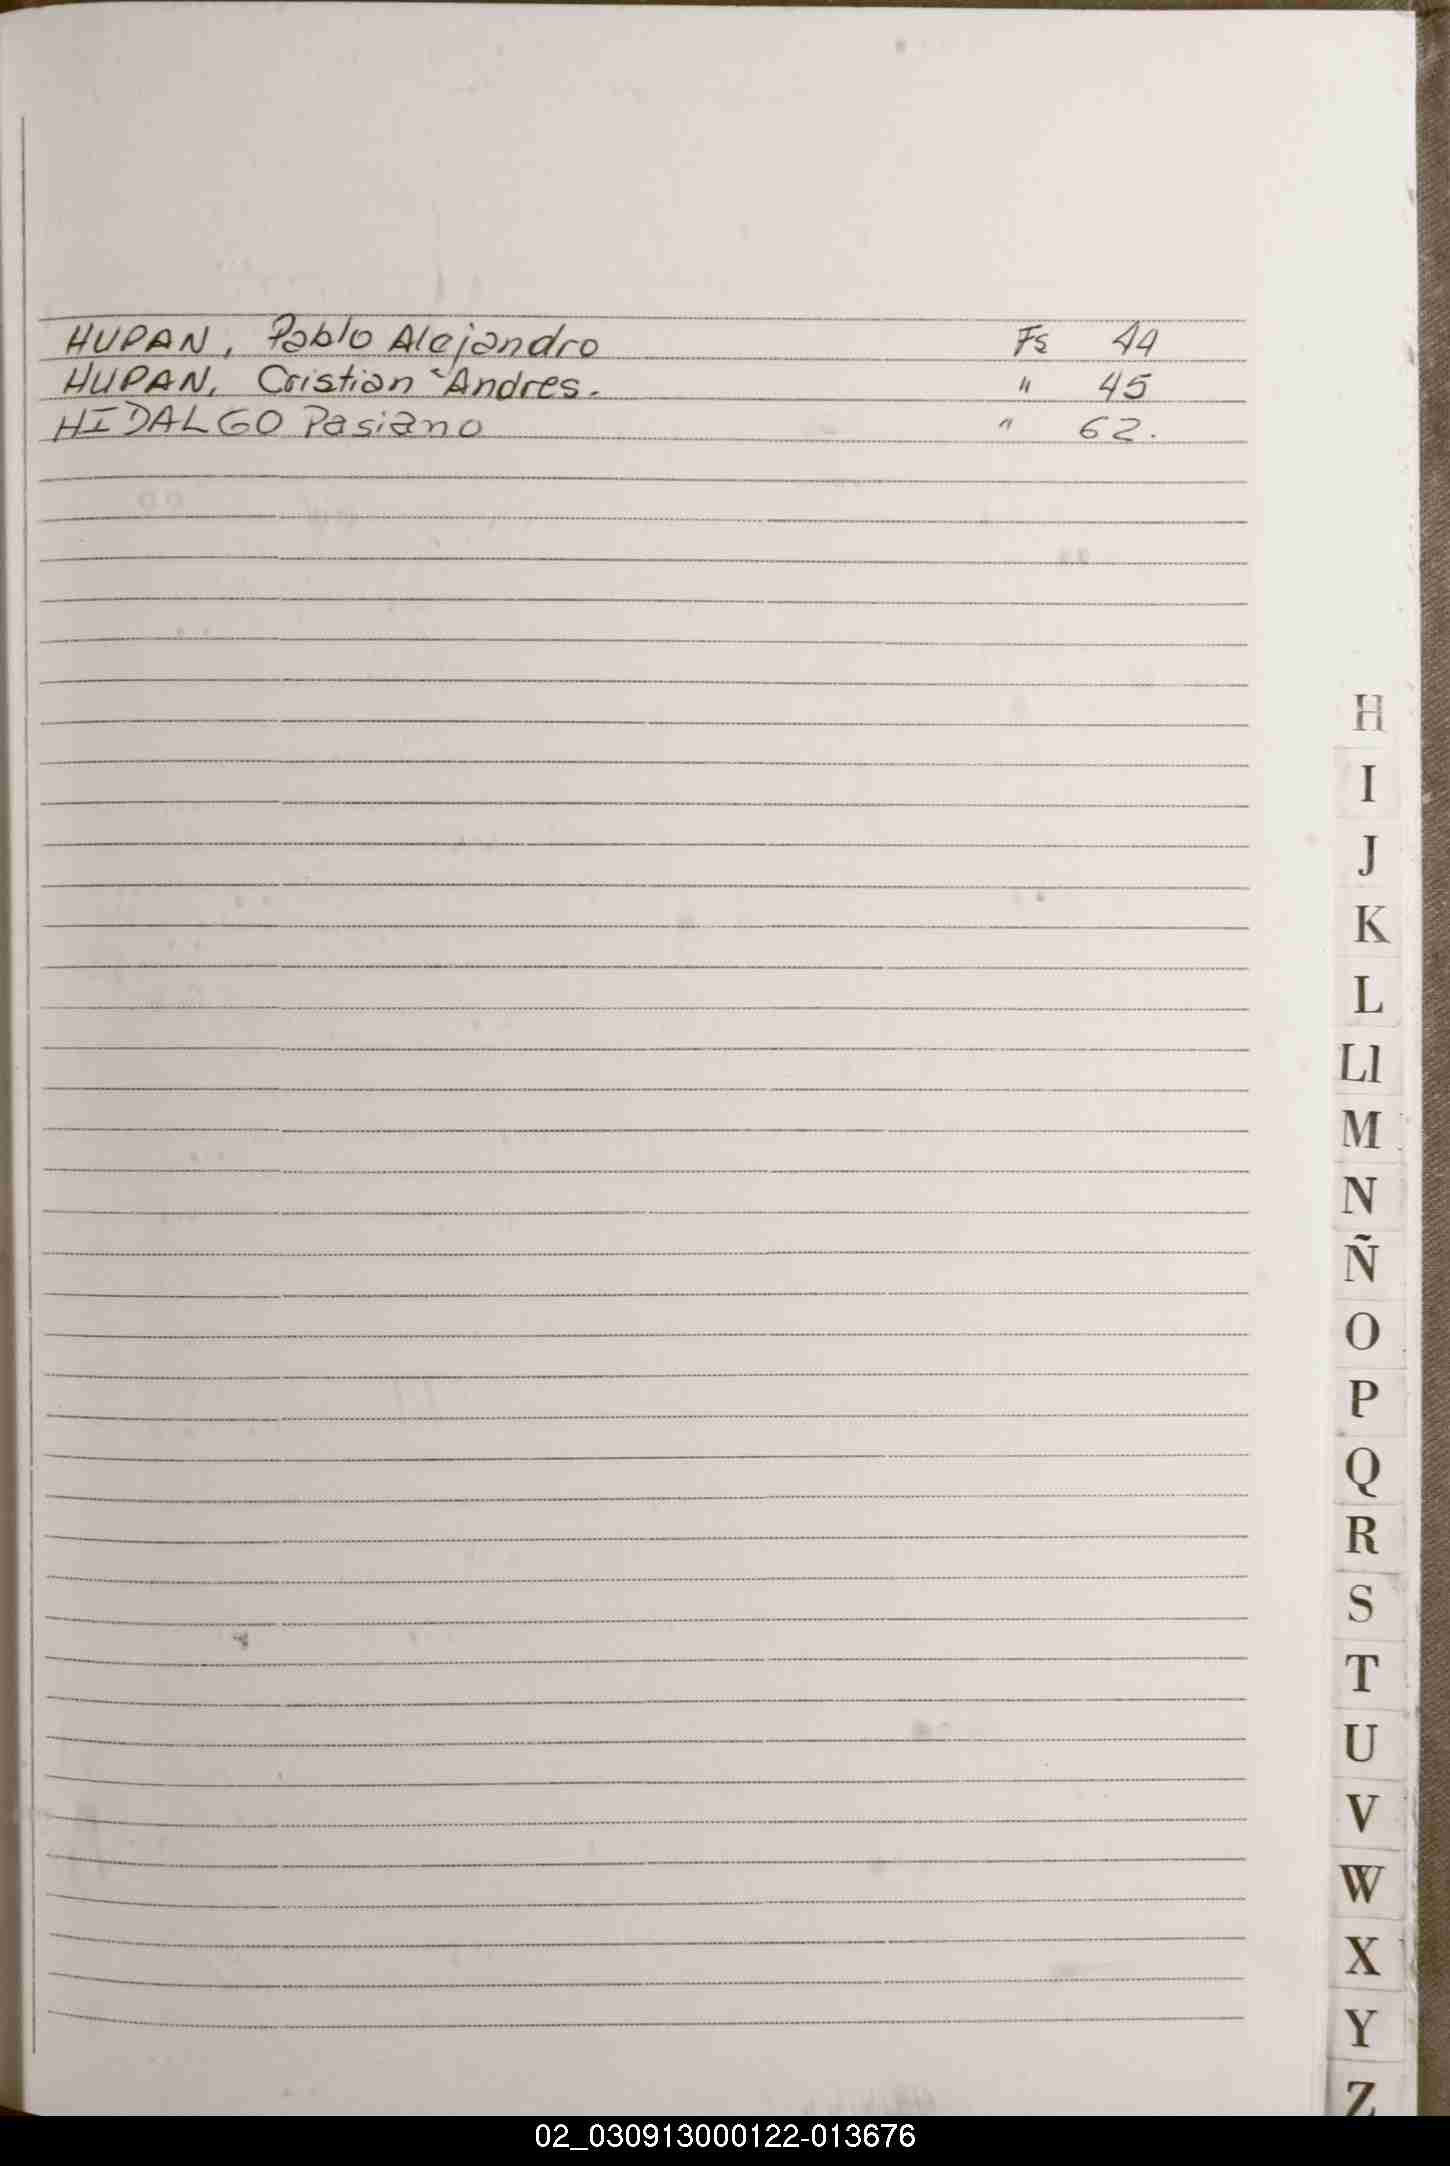 HUPAN, Pablo Alejandro Fs 44
HUPAN, Cristian Andres. " 45
HIDALGO Pasiano " 62.
H
I
J
K
L
Ll
M
N
Ñ
O
P
Q
R
S
T
U
V
W
X
Y
Z
02_030913000122-013676